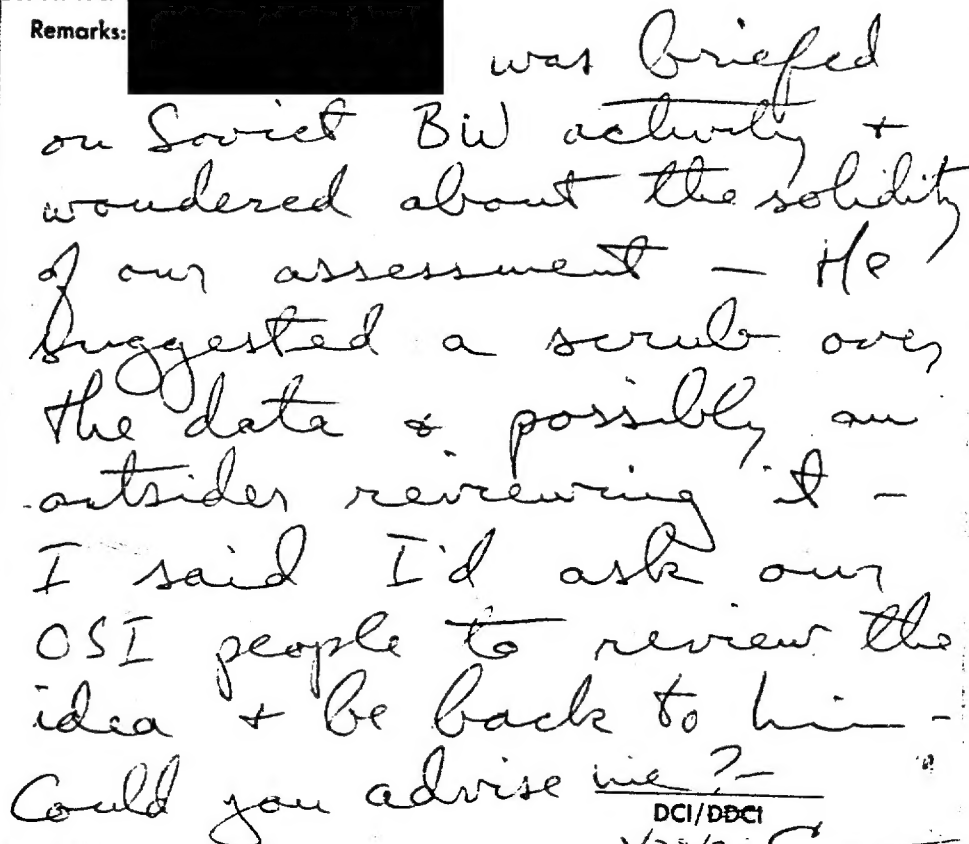 Remarks:
was briefed
on Soviet BW activity +
wondered about the solidity
of our assessment – He
suggested a scrub over
the data & possibly an
outsider reviewing it –
I said I'd ask our
OSI people to review the
idea + be back to him –
Could you advise me? –
DCI/DDCI